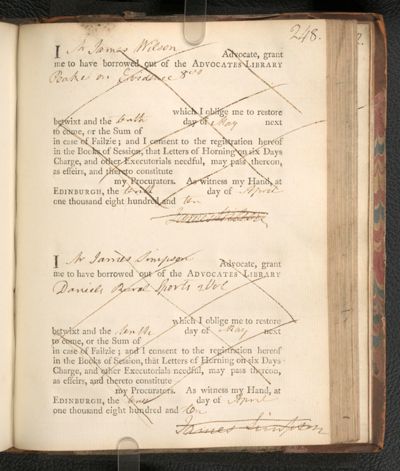 248.
I Mr James Wilson Advocate, grant
me to have borrowed out of the ADVOCATES LIBRARY
Bake on Evidence 8vo
which I oblige me to restore
betwixt and the tenth day of May next
to come, or the Sum of
in case of Failzie; and I consent to the registration hereof
in the Books of Session, that Letters of Horning on six Days
Charge, and other Executorials needful, may pass thereon,
as effeirs, and thereto constitute
my Procurators. As witness my Hand, at
EDINBURGH, the tenth day of April
one thousand eight hundred and ten
James Wilson
I Mr James Simpson Advocate, grant
me to have borrowed out of the ADVOCATES LIBRARY
Daniels Rural Sports 2 Vol
which I oblige me to restore
betwixt and the tenth day of May next
to come, or the Sum of
in case of Failzie; and I consent to the registration hereof
in the Books of Session, that Letters of Horning on six Days
Charge, and other Executorials needful, may pass thereon,
as effeirs, and thereto constitute
my Procurators. As witness my Hand, at
EDINBURGH, the day of April
one thousand eight hundred and ten
James Simpson